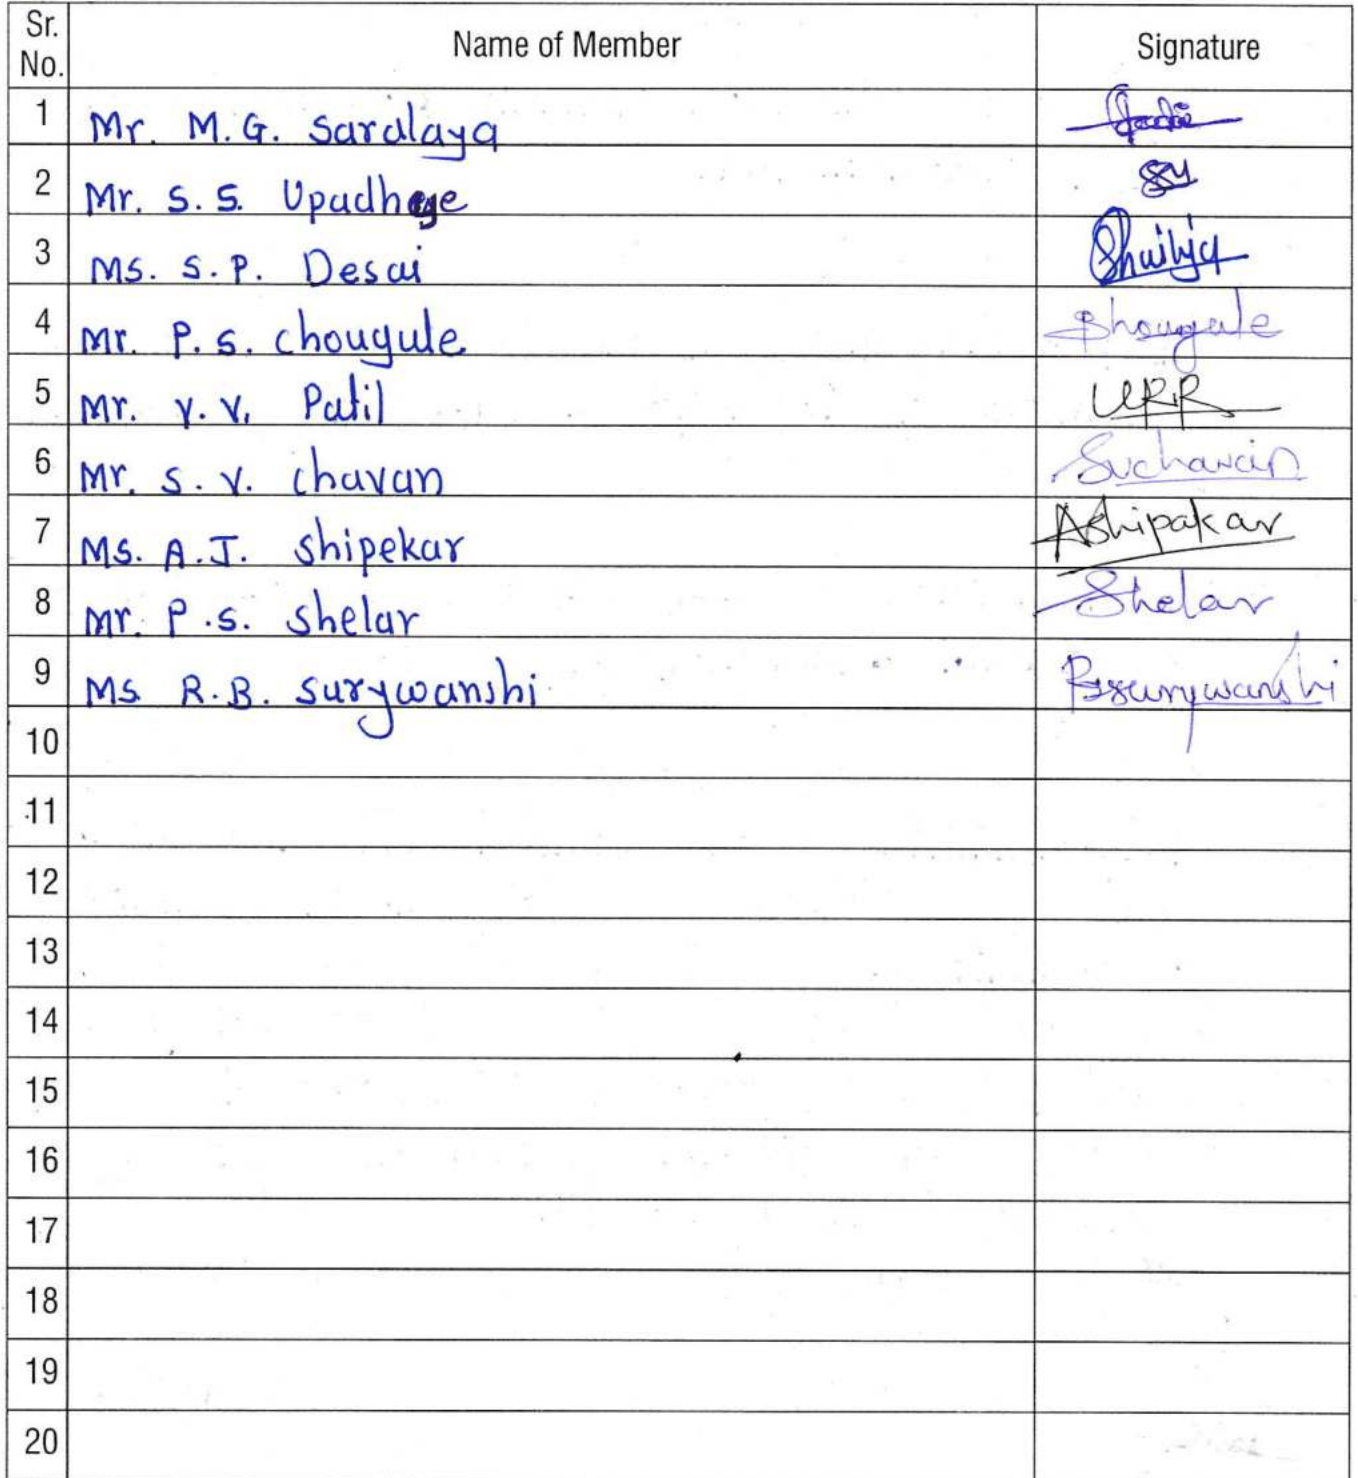 Sr. No. Name of Member Signature
1 Mr. M.G. Saralaya
2 Mr. S.S. Upadhye
3 Ms. S.P. Desai Shailja
4 Mr. P.S. chougule Bhougule
5 Mr. Y.V. Patil
6 Mr. S.V. chavan Svchavan
7 Ms. A.J. shipekar AShipakar
8 Mr. P.S. shelar Shelar
9 Ms R.B. surywanshi Rbsurywanshi
10
11
12
13
14
15
16
17
18
19
20